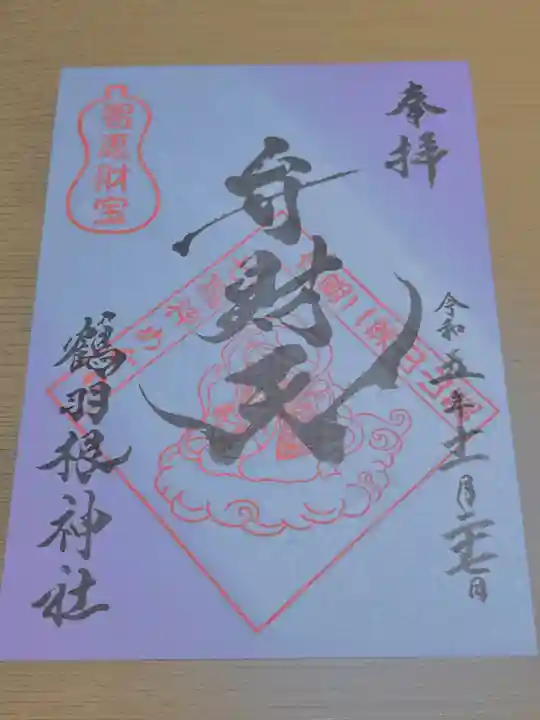 奉拝
令和五年十一月二十七日
弁財天
智恵財宝
鶴羽根神社